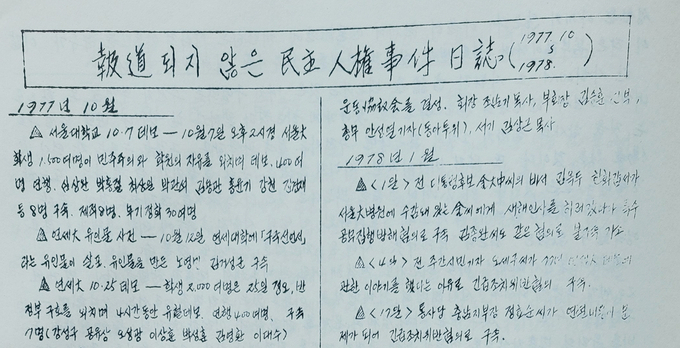 報道되지 않은 民主人權事件日誌 (1977. 10 ~ 1978.)
1977년 10월
△ 서울대학교 10·7 데모 — 10월 7일 오후 2시경 서울大
학생 1,500여명이 민주주의와 학원의 자유를 외치며 데모. 400여
명 연행. 심상완 양춘승 최상일 문성훈 강천 김경택
등 8명 구속. 제적 8명. 무기정학 30여명
△ 연세大 유인물 사건 — 10월 12일 연세대학에「구국선언서」
라는 유인물이 살포. 유인물을 만든 노영민 김거성군 구속
△ 연세大 10·25 데모 — 학생 2,000여명은 25일 정오, 반
정부 구호를 외치며 4시간동안 유혈데모. 연행 400여명. 구속
7명 (강성구 공유상 이상훈 박성훈 김영환 이대수)
운동協議會를 결성. 회장 조남기목사, 부회장 김승훈신부,
총무 안성열기자(동아투위), 서기 김상근목사
1978년 1월
△ <1일> 전 대통령후보 金大中씨의 비서 김옥두 한화갑씨가
서울大병원에 수감돼 있는 金씨에게 새해인사를 하려 갔다가 특수
공무집행방해 혐의로 구속 김종완씨도 같은 혐의로 불구속 기소
△ <4일> 전 주간시민기자 오세구씨가
관한 이야기를 했다는 이유로 긴급조치위반 혐의 구속.
△ <17일> 통사당 충남지부장 정효순씨가 연설내용이 문
제가 되어 긴급조치위반혐의로 구속.